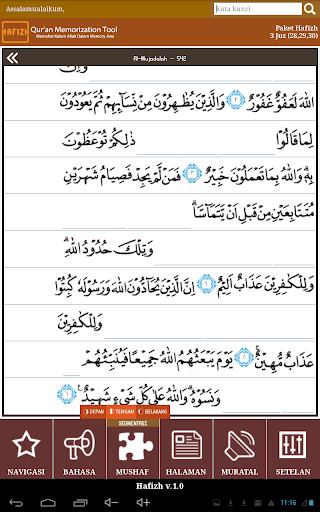 Assalamualaikum,
Kata kunci
HAFIZH
Qur'an Memorization Tool
Paket Hafizh
3 Juz (28,29,30)
Al-Mujadalah - 542
وَاِنَّ
اللّٰهَ لَعَفُوٌّ غَفُوْرٌ ٢ وَالَّذِيْنَ يُظٰهِرُوْنَ مِنْ نِّسَاۤىِٕهِمْ ثُمَّ يَعُوْدُوْنَ
لِمَا قَالُوْا ذٰلِكُمْ تُوْعَظُوْنَ
بِهٖ وَاللّٰهُ بِمَا تَعْمَلُوْنَ خَبِيْرٌ ٣ فَمَنْ لَّمْ يَجِدْ فَصِيَامُ شَهْرَيْنِ
مُتَتَابِعَيْنِ مِنْ قَبْلِ اَنْ يَّتَمَاۤسَّا
وَتِلْكَ حُدُوْدُ اللّٰهِ
وَلِلْكٰفِرِيْنَ عَذَابٌ اَلِيْمٌ ٤ اِنَّ الَّذِيْنَ يُحَاۤدُّوْنَ اللّٰهَ وَرَسُوْلَهٗ كُبِتُوْا
وَلِلْكٰفِرِيْنَ
عَذَابٌ مُّهِيْنٌ ٥ يَوْمَ يَبْعَثُهُمُ اللّٰهُ جَمِيْعًا فَيُنَبِّئُهُمْ
وَنَسُوْهُ وَاللّٰهُ عَلٰى كُلِّ شَيْءٍ شَهِيْدٌ ٦
DEPAN TENGAH BELAKANG
SEGMENTASI
NAVIGASI BAHASA MUSHAF HALAMAN MUROTAL SETELAN
Hafizh v.1.0
11:16